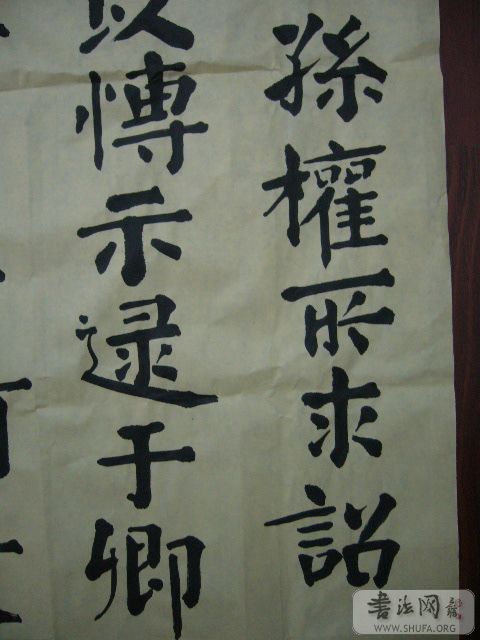 孫權所求詔
以愽示逮于卿
書法网
WWW.SHUFA.ORG